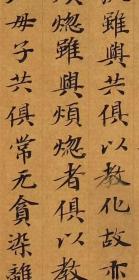 雖與共俱以教化故亦
惚雖與煩惚者俱以教
母子共俱常无貪染離